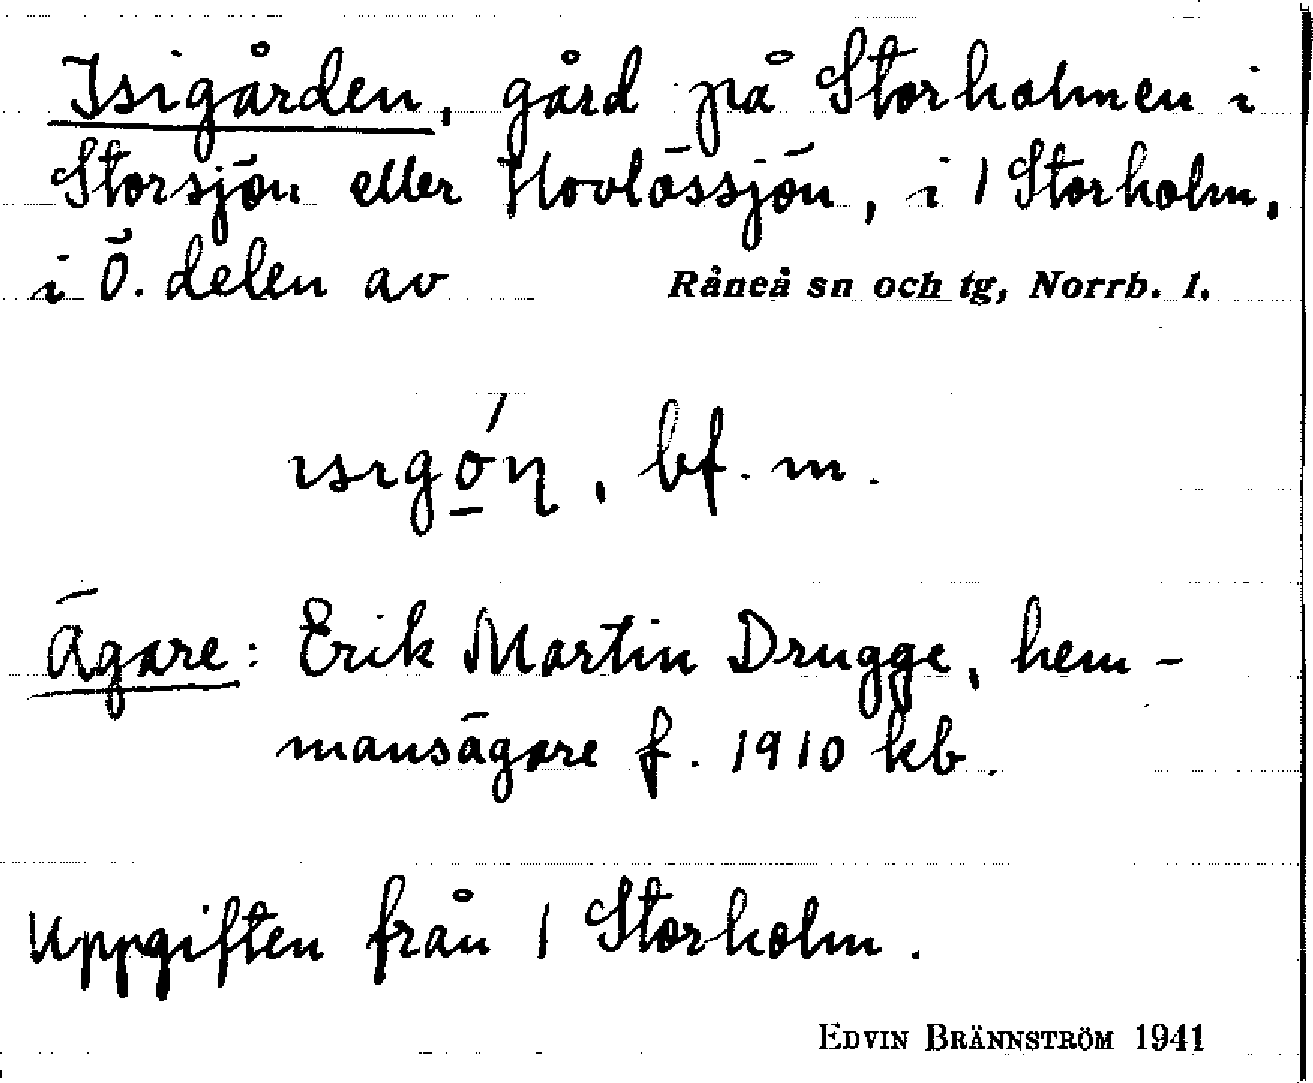 Isigården, gård på Storholmen i
Storsjön eller Hovlössjön, i 1 Storholm,
i Ö. delen av Råneå sn och tg, Norrb. l.
ısıgǫ́ɳ, bf. m.
Ägare: Erik Martin Drugge, hem-
mansägare f. 1910 kb.
Uppgiften från 1 Storholm.
EDVIN BRÄNNSTRÖM 1941